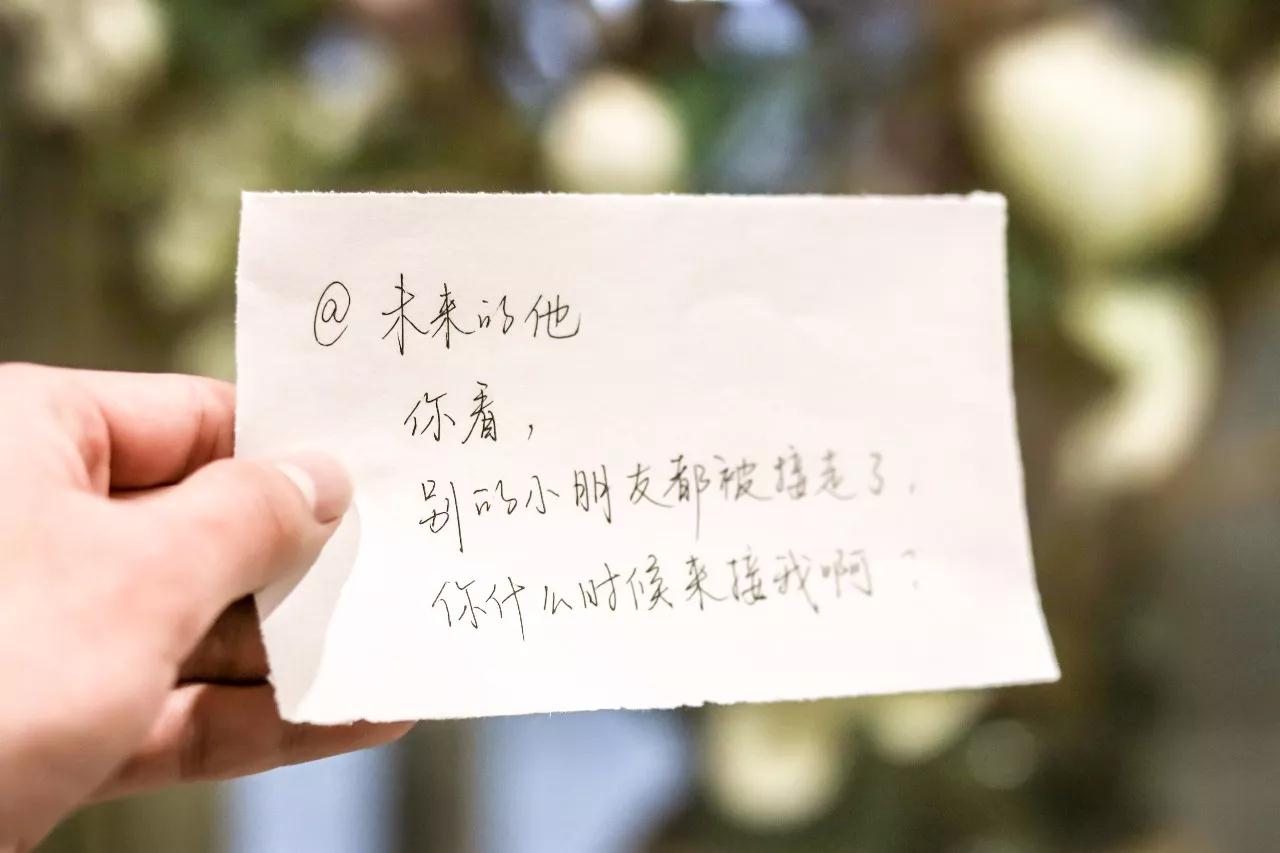 @ 未来的他
你看，
别的小朋友都被接走了，
你什么时候来接我啊？